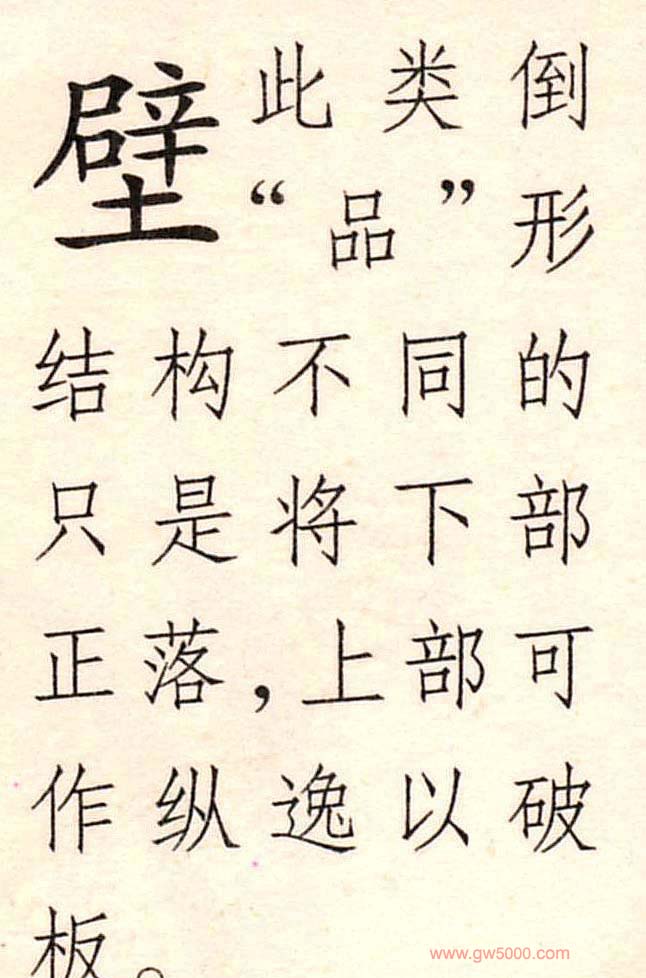 壁
此类倒
“品”形
结构不同的
只是将下部
正落,上部可
作纵逸以破
板。
www.gw5000.com